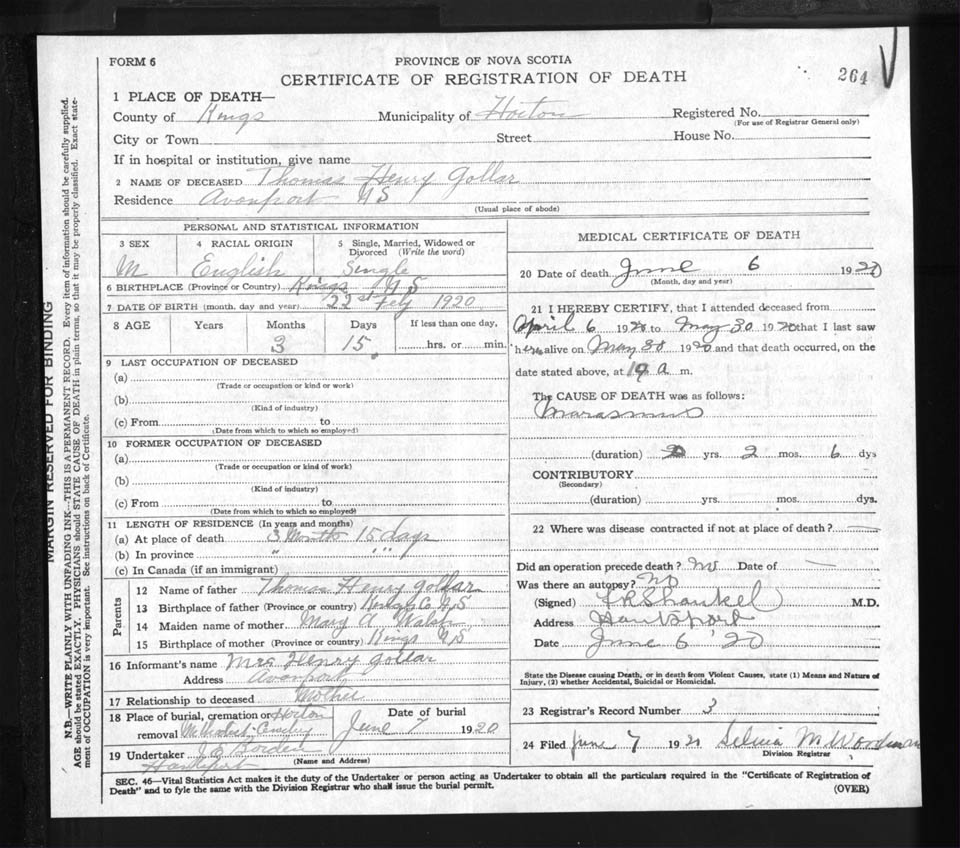 FORM 6
PROVINCE OF NOVA SCOTIA
CERTIFICATE OF REGISTRATION OF DEATH
264
1 PLACE OF DEATH—
County of Kings Municipality of Horton Registered No.
(For use of Registrar General only)
City or Town Street House No.
If in hospital or institution, give name
2 NAME OF DECEASED Thomas Henry Gollar
Residence Avonport N S
(Usual place of abode)
PERSONAL AND STATISTICAL INFORMATION
3 SEX 4 RACIAL ORIGIN 5 Single, Married, Widowed or Divorced (Write the word)
M English Single
6 BIRTHPLACE (Province or Country) Kings N S
7 DATE OF BIRTH (month, day and year) 22st Feby 1920
8 AGE Years Months Days If less than one day,
3 15 hrs. or min.
9 LAST OCCUPATION OF DECEASED
(a)
(Trade or occupation or kind or work)
(b)
(Kind of industry)
(c) From to
(Date from which to which so employed)
10 FORMER OCCUPATION OF DECEASED
(a)
(Trade or occupation or kind of work)
(b)
(Kind of industry)
(c) From to
(Date from which to which so employed)
11 LENGTH OF RESIDENCE (In years and months)
(a) At place of death 3 Months 15 days
(b) In province " " "
(c) In Canada (if an immigrant)
Parents
12 Name of father Thomas Henry Gollar
13 Birthplace of father (Province or country) Kings Co N S
14 Maiden name of mother Mary A Walsh
15 Birthplace of mother (Province or country) Kings N S
16 Informant's name Mrs Henry Gollar
Address Avonport
17 Relationship to deceased Mother
18 Place of burial, cremation or Horton Date of burial
removal Methodist Cemetery June 7 1920
19 Undertaker J E Borden
(Name and Address)
Hantsport
MEDICAL CERTIFICATE OF DEATH
20 Date of death June 6 1920
(Month, day and year)
21 I HEREBY CERTIFY, that I attended deceased from
April 6 1920 to May 30 1920 that I last saw
him alive on May 30 1920 and that death occurred, on the
date stated above, at a m.
The CAUSE OF DEATH was as follows:
Marasmus
(duration) yrs. 2 mos. 6 dys
CONTRIBUTORY
(Secondary)
(duration) yrs. mos. dys.
22 Where was disease contracted if not at place of death?
Did an operation precede death? No Date of —
Was there an autopsy? No
(Signed) F R Shankel M.D.
Address Hantsport
Date June 6 '20
State the Disease causing Death, or in death from Violent Causes, state (1) Means and Nature of
Injury, (2) whether Accidental, Suicidal or Homicidal.
23 Registrar's Record Number 3
24 Filed June 7 1920 Selina M Woodman
Division Registrar
SEC. 46—Vital Statistics Act makes it the duty of the Undertaker or person acting as Undertaker to obtain all the particulars required in the "Certificate of Registration of
Death" and to fyle the same with the Division Registrar who shall issue the burial permit.
(OVER)
MARGIN RESERVED FOR BINDING
N.B.—WRITE PLAINLY WITH UNFADING INK—THIS IS A PERMANENT RECORD. Every item of information should be carefully supplied.
AGE should be stated EXACTLY. PHYSICIANS should STATE CAUSE OF DEATH in plain terms, so that it may be properly classified. Exact state-
ment of OCCUPATION is very important. See instructions on back of Certificate.